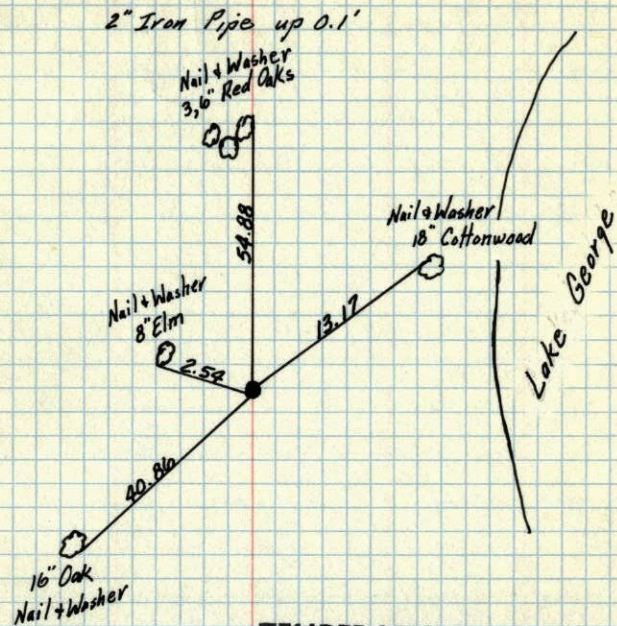 2" Iron Pipe up 0.1'
Nail & Washer
3,6" Red Oaks
54.88
Nail & Washer
18" Cottonwood
13.17
Lake George
Nail & Washer
8" Elm
2.54
40.86
16" Oak
Nail & Washer